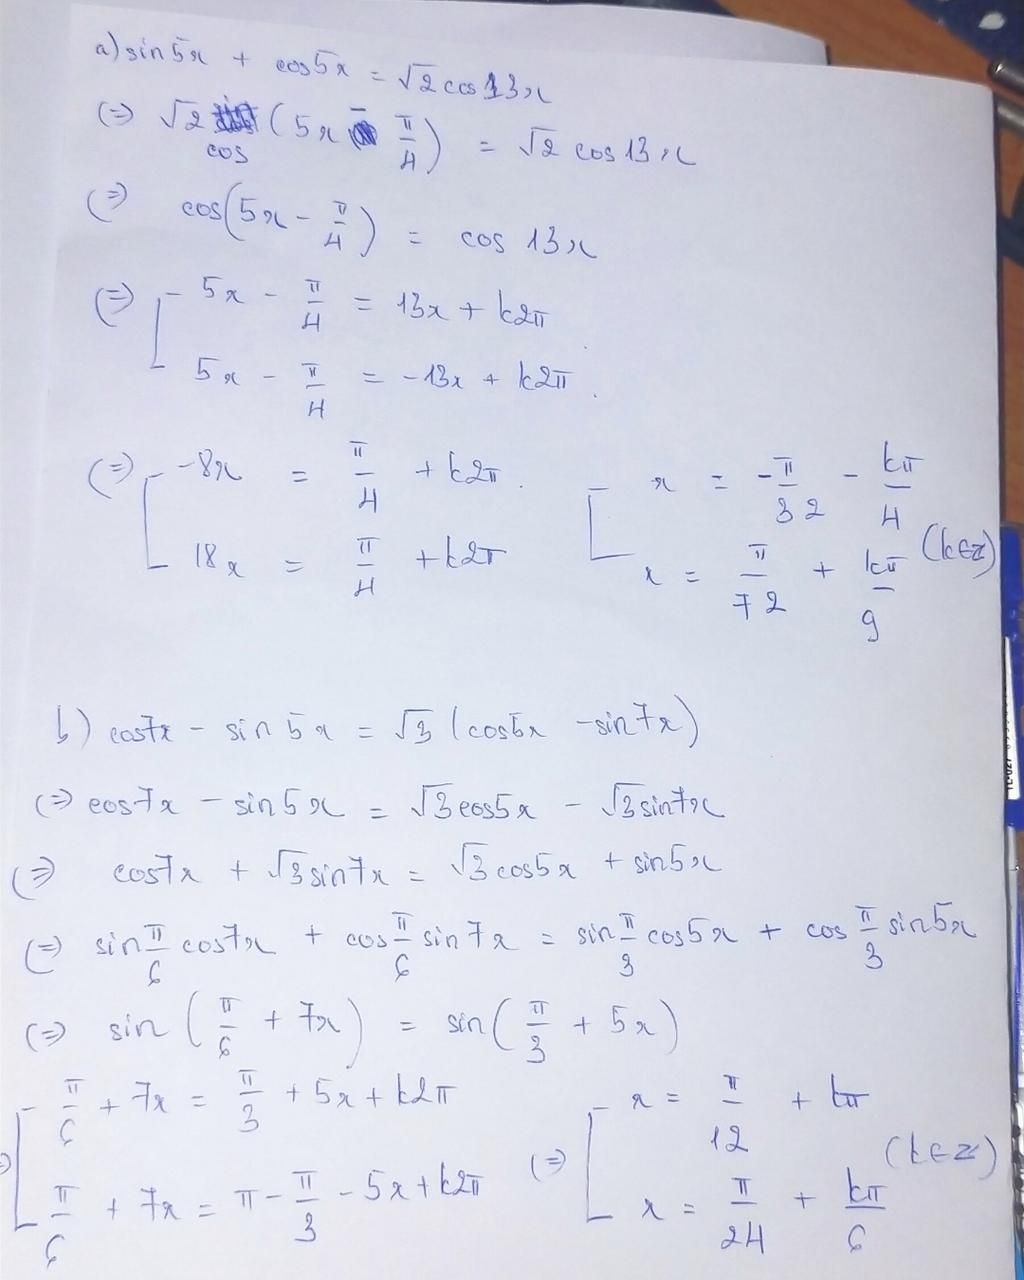 a) sin5x + cos5x = √2 cos13x
(=) √2 cos (5x - π/4) = √2 cos13x
(=) cos(5x - π/4) = cos 13x
(=) [ 5x - π/4 = 13x + k2π
5x - π/4 = -13x + k2π.
(=) [ -8x = π/4 + k2π. [ x = -π/32 - kπ/4
18x = π/4 + k2π x = π/72 + kπ/9 (k∈Z)
b) cos7x - sin5x = √3 (cos5x - sin7x)
(=) cos7x - sin5x = √3cos5x - √3sin7x
(=) cos7x + √3sin7x = √3cos5x + sin5x
(=) sin π/6 cos7x + cos π/6 sin7x = sin π/3 cos5x + cos π/3 sin5x
(=) sin (π/6 + 7x) = sin(π/3 + 5x)
(=) [ π/6 + 7x = π/3 + 5x + k2π (=) [ x = π/12 + kπ
π/6 + 7x = π - π/3 - 5x + k2π x = π/24 + kπ/6 (k∈Z)